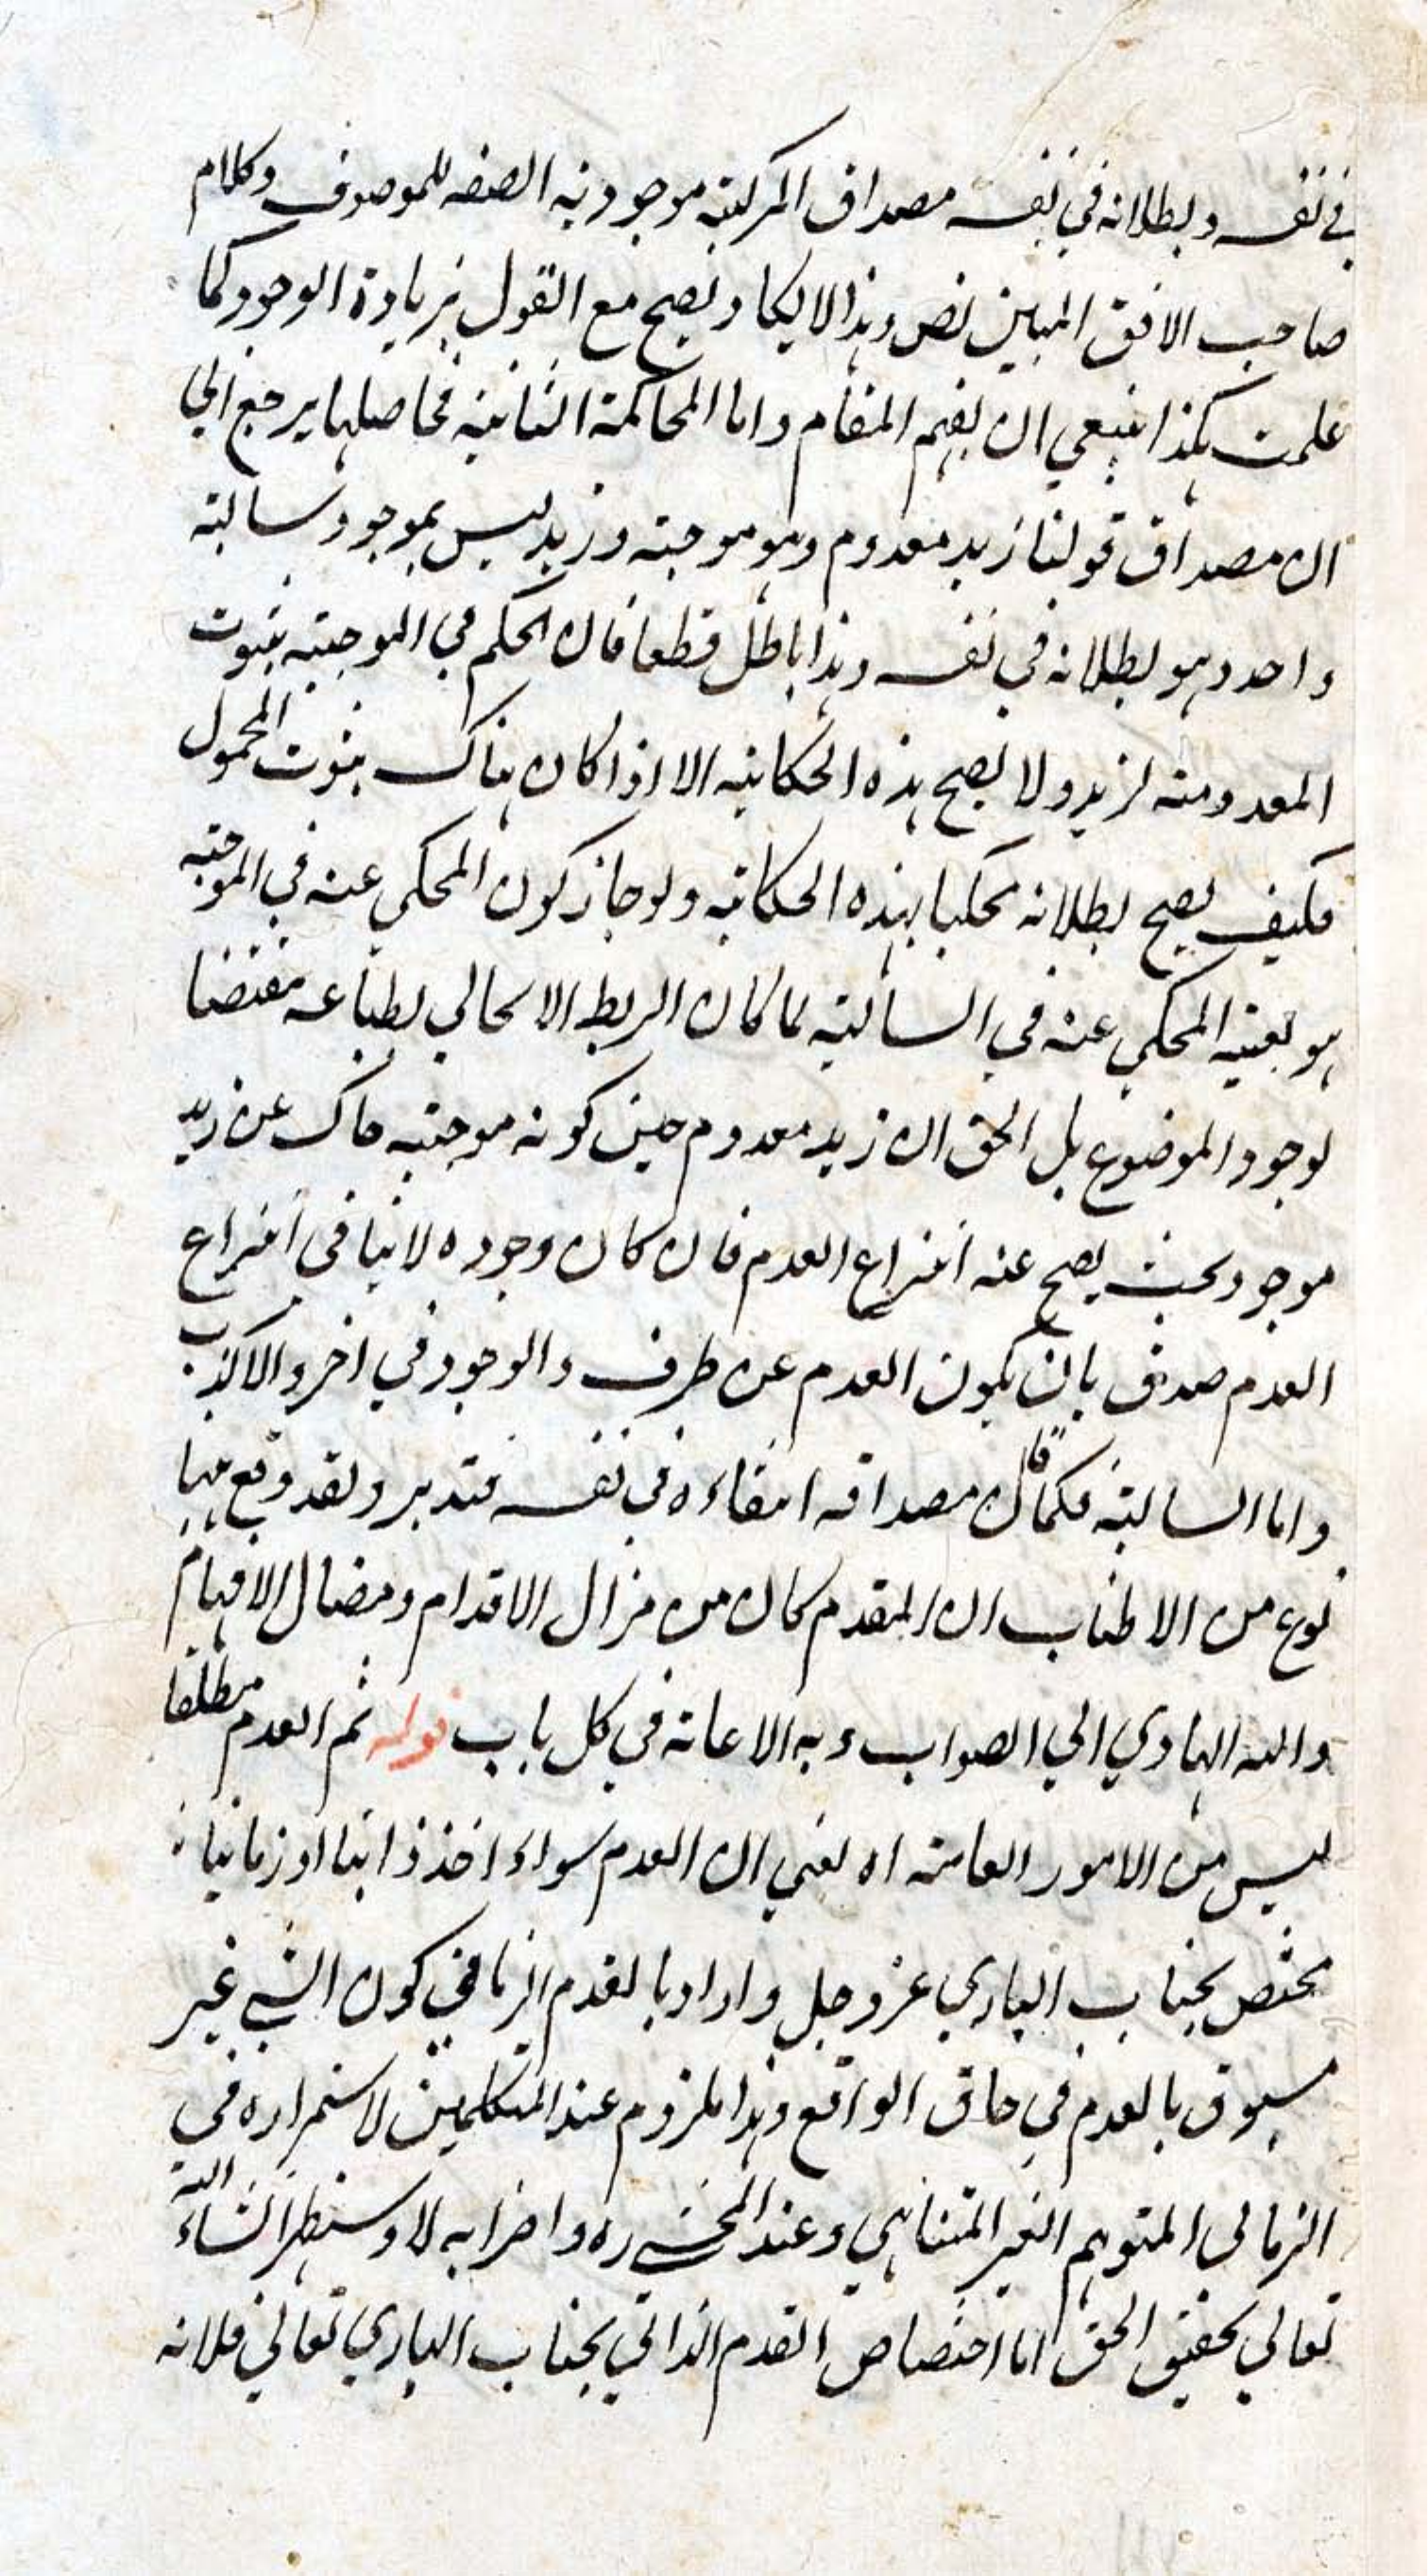 في نفسه وبطلانه في نفسه مصداق المركبته موجودية الصفه للموصوف وكلام
صاحب الافق المبين نص وهذا لا يكاد يصح مع القول بزيادة الوجود كما
علمت هكذا ينبغي ان يفهم المقام واما المحاكمة الثانية فحاصلها يرجع الي
ان مصداق قولنا زيد معدوم وهو موجبته وزيد ليس بموجود سالبته
واحد وهو بطلانه في نفسه وهذا باطل قطعا فان الحكم في الموجبته بثبوت
المعدومته لزيد ولا يصح هذه الحكاية الا اذا كان هناك ثبوت المحمول
فكيف يصح بطلانه محكيا بهذه الحكاية ولو جاز كون المحكي عنه في الموجبه
هو بعينه المحكي عنه في السالبته لما كان الربط الايجابي بطباعه مقتضيا
لوجود الموضوع بل الحق ان زيد معدوم حين كونه موجبته حاك عن زيد
موجود بحيث يصح عنه انتزاع العدم فان كان وجوده لا ينافي انتزاع
العدم صدق بان يكون العدم عن ظرف والوجود في اخر والا كذب
واما السالبته فكما قال مصداقه انتفاءه في نفسه فتدبر ولقد وقع هنا
نوع من الاطناب ان المقدم كان من مزال الاقدام ومضال الافهام
والله الهادي الي الصواب وبه الاعانة في كل باب قوله ثم العدم مطلقا
ليس من الامور العامته اه يعني ان العدم سواء اخذ ذاتيا او زمانيا
مختص بجناب الباري عز وجل واراد بالقدم الزماني كون الشي غير
مسبوق بالعدم في حاق الواقع وهذا ملزوم عند المتكلمين لاستمراره في
الزماني المتوهم الغير المتناهي وعند المحشي ره واضرابه لا وسيظهر انشاء الله
تعالي تحقيق الحق اما اختصاص القدم الذاتي بجناب الباري تعالي فلانه